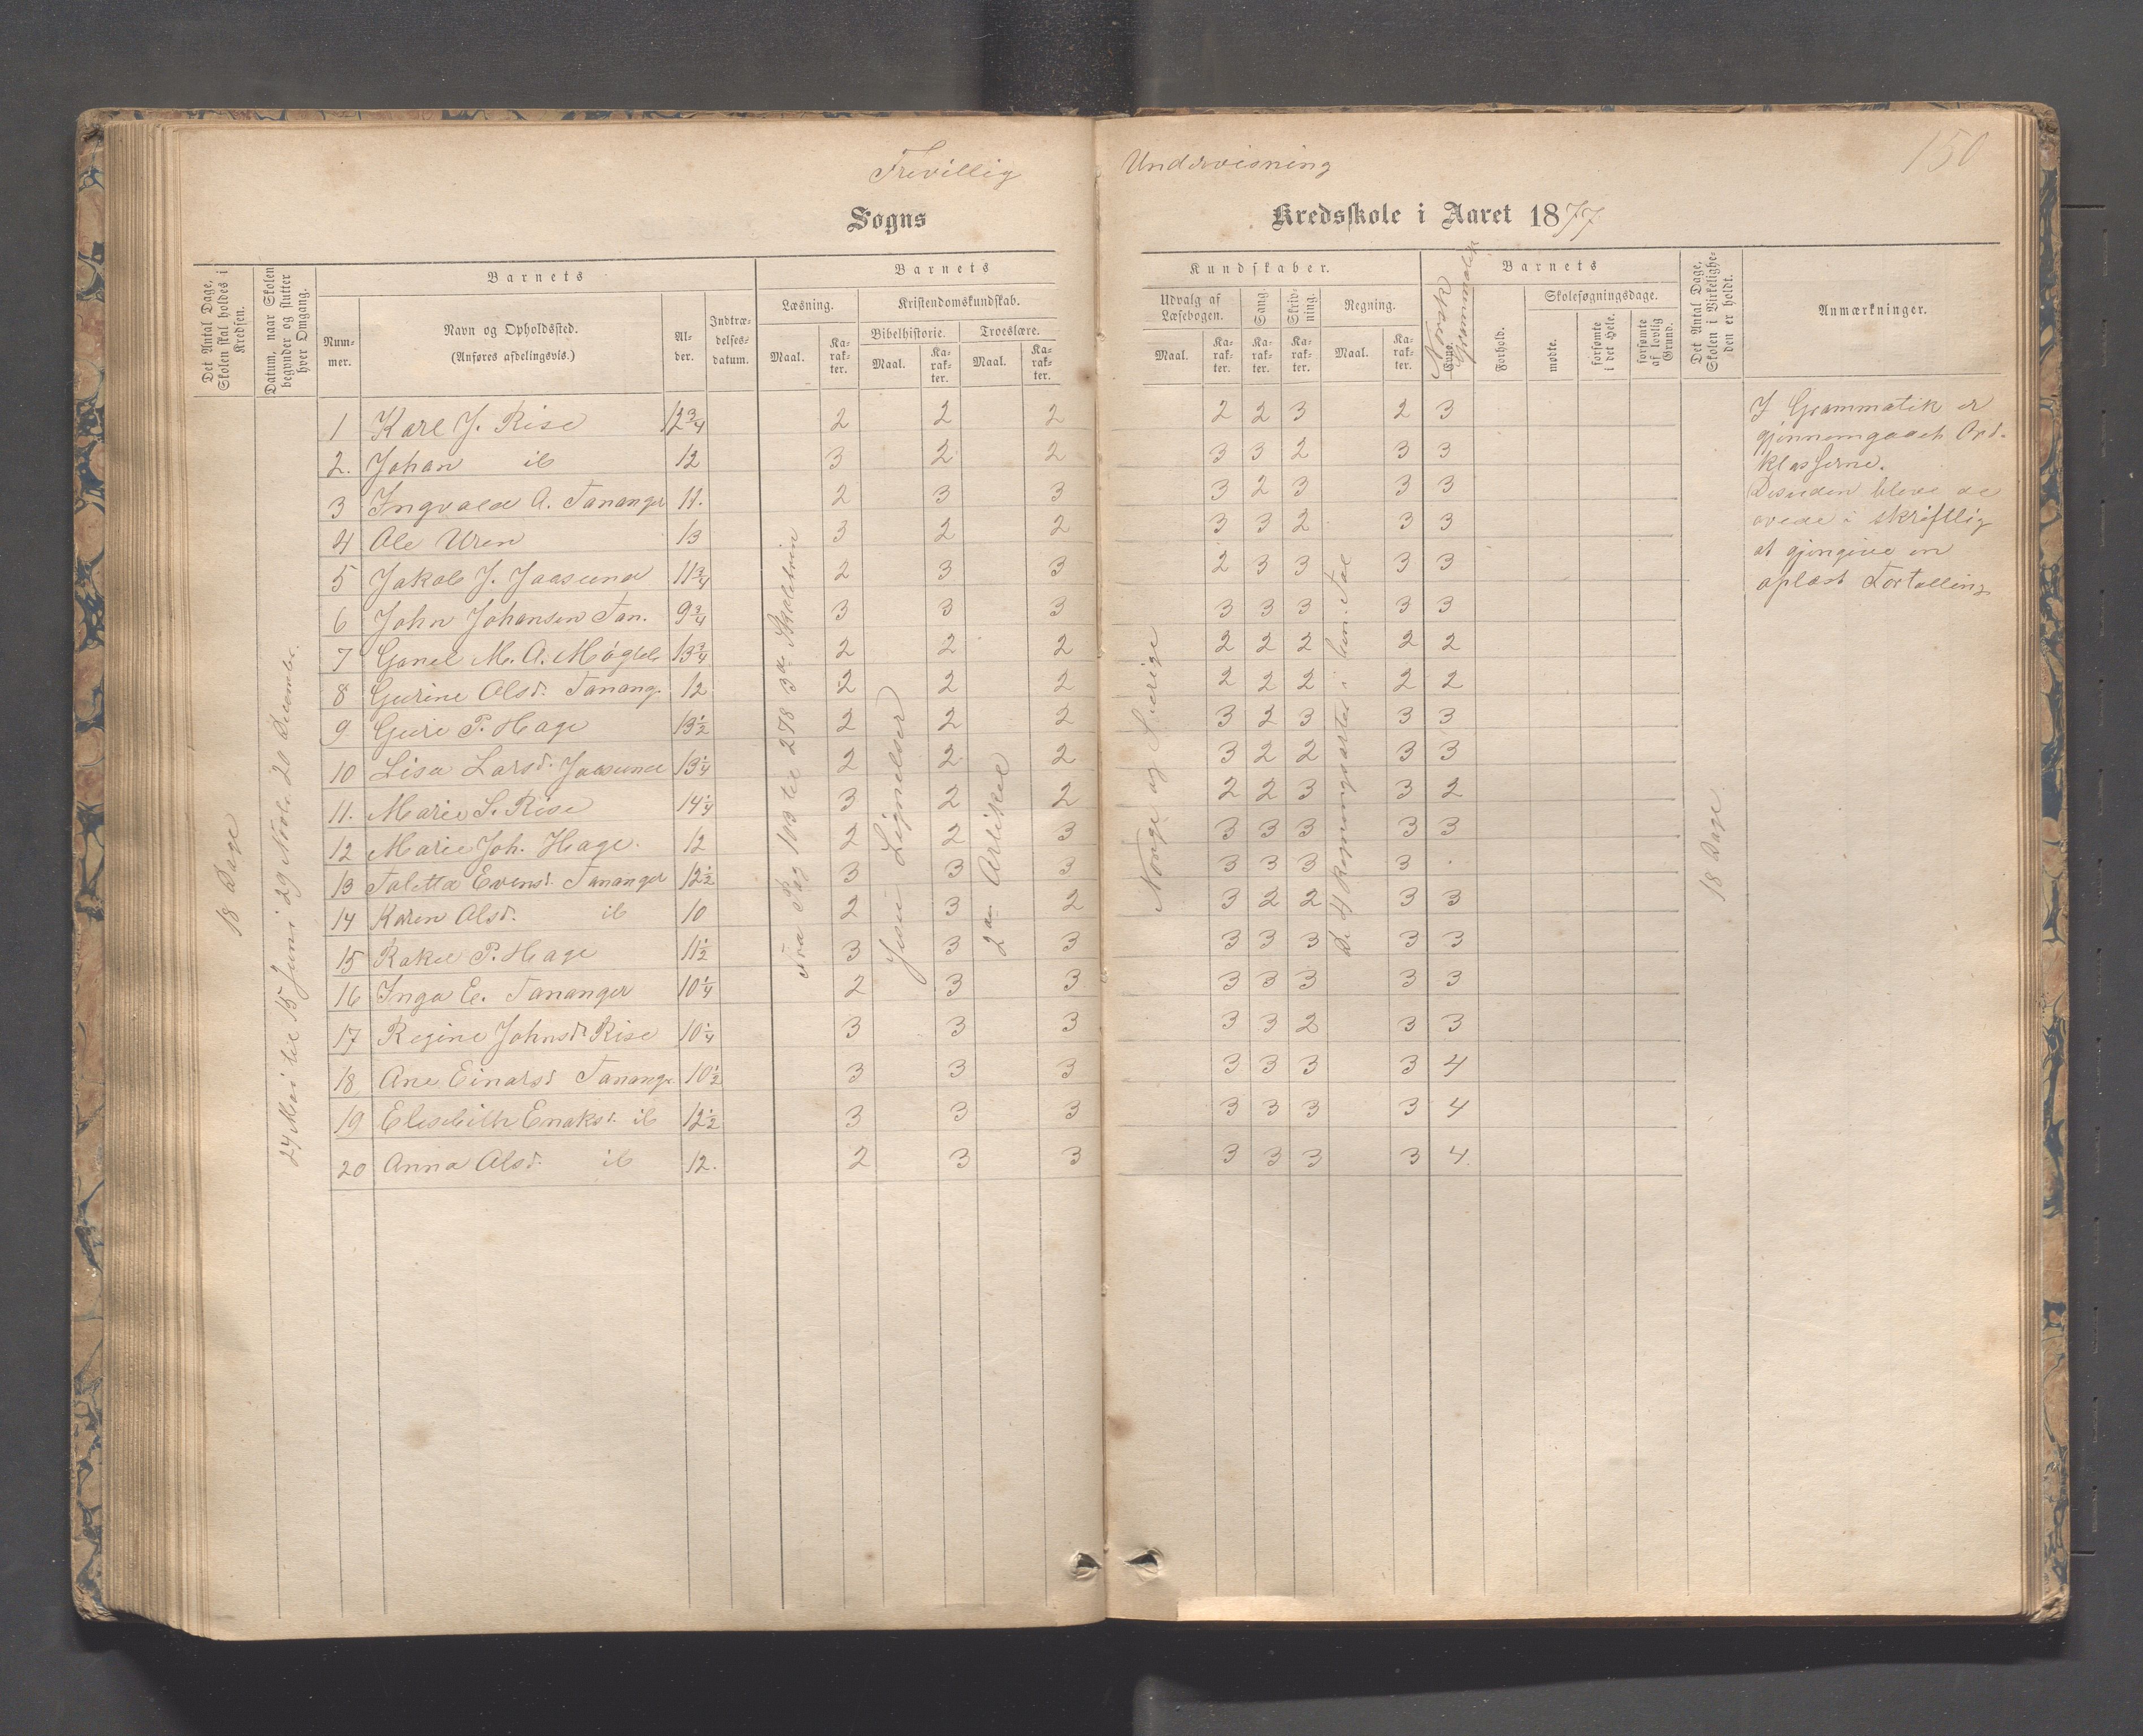 Frivillig Undervisning
150
Sogns Kredsskole i Aaret 1877
Det Antal Dage, Skolen skal holdes i Kredsen.
Datum, naar Skolen begynder og slutter hver Omgang.
Barnets
Nummer.
Navn og Opholdssted.
(Anføres afdelingsvis.)
Alder.
Indtrædelsesdatum.
Barnets
Læsning.
Kristendomskundskab.
Bibelhistorie.
Troeslære.
Maal.
Karakter.
Maal.
Karakter.
Maal.
Karakter.
Kundskaber.
Udvalg af Læsebogen.
Sang.
Skrivning.
Regning.
Maal.
Karakter.
Karakter.
Karakter.
Maal.
Karakter.
Norsk Grammatik
Barnets
Evne.
Forhold.
Skolesøgningsdage.
mødte.
forsømte i det Hele.
forsømte af lovlig Grund.
Det Antal Dage, Skolen i Virkeligheden er holdt.
Anmærkninger.
18 Dage
24 Mai til 15 Juni 29 Novb. 20 December.
Fra Pag 103 til 278 3de Skoletrin
Jesu Lignelser
2den Artikel
Norge og Sverige
De 4 Regningsarter i ben. Tal
18 Dage
1 Karl J. Rise 12 3/4 2 2 2 2 2 3 2 3
2. Johan ib 12 3 2 2 3 3 2 3 3
3 Ingvald A. Tananger 11. 2 3 3 3 2 3 3 3
4 Ole Uren 13 3 2 2 3 3 2 3 3
5 Jakob J. Jaasund 11 3/4 2 3 3 2 3 3 3 3
6 John Johansen Tan. 9 3/4 3 3 3 3 3 3 3 3
7 Gonel M. A. Møgleb 13 3/4 2 2 2 2 2 2 2 2
8 Gurine Olsd. Tanang. 12 2 2 2 2 2 2 2 2
9 Guri P. Hage 13 1/2 2 2 2 3 2 3 3 3
10 Lisa Larsd. Jaasund 13 1/4 2 2 2 3 2 2 3 3
11. Marie S. Rise 14 1/4 3 2 2 2 2 3 3 2
12 Marie Joh. Hage. 12 2 2 3 3 3 3 3 3
13 Taletta Evensd. Tananger 12 1/2 3 3 3 3 3 3 3 .
14 Karen Olsd. ib 10 2 3 2 3 2 2 3 3
15 Rakel P. Hage 11 1/2 3 3 3 3 3 3 3 3
16 Inga E. Tananger 10 1/4 2 3 3 3 3 3 3 3
17 Regine Johnsd. Rise 10 1/4 3 3 3 3 3 2 3 3
18 Ane Einarsd Tanang. 10 1/2 3 3 3 3 3 3 3 4
19 Elisebith Enoksd. ib 12 1/2 3 3 3 3 3 3 3 4
20 Anna Olsd. ib 12. 2 3 3 3 3 3 3 4
I Grammatik er
gjennemgaaet Ord-
klasserne.
Desuden bleve de
øvede i skriftlig
at gjengive en
oplæst Fortælling